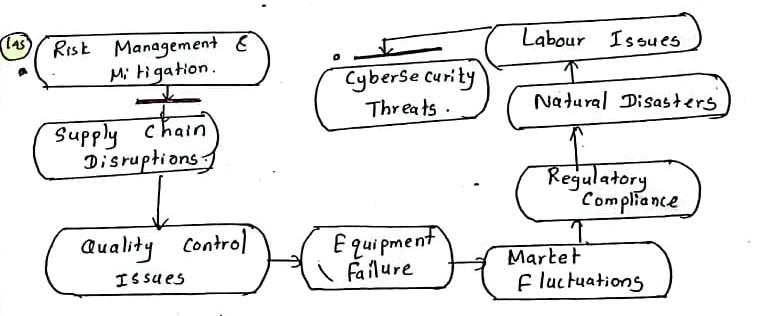 Risk Management &
Mitigation.
Supply Chain
Disruptions.
Quality Control
Issues
Equipment
Failure
Market
Fluctuations
Regulatory
Compliance
Natural Disasters
Labour Issues
Cybersecurity
Threats.